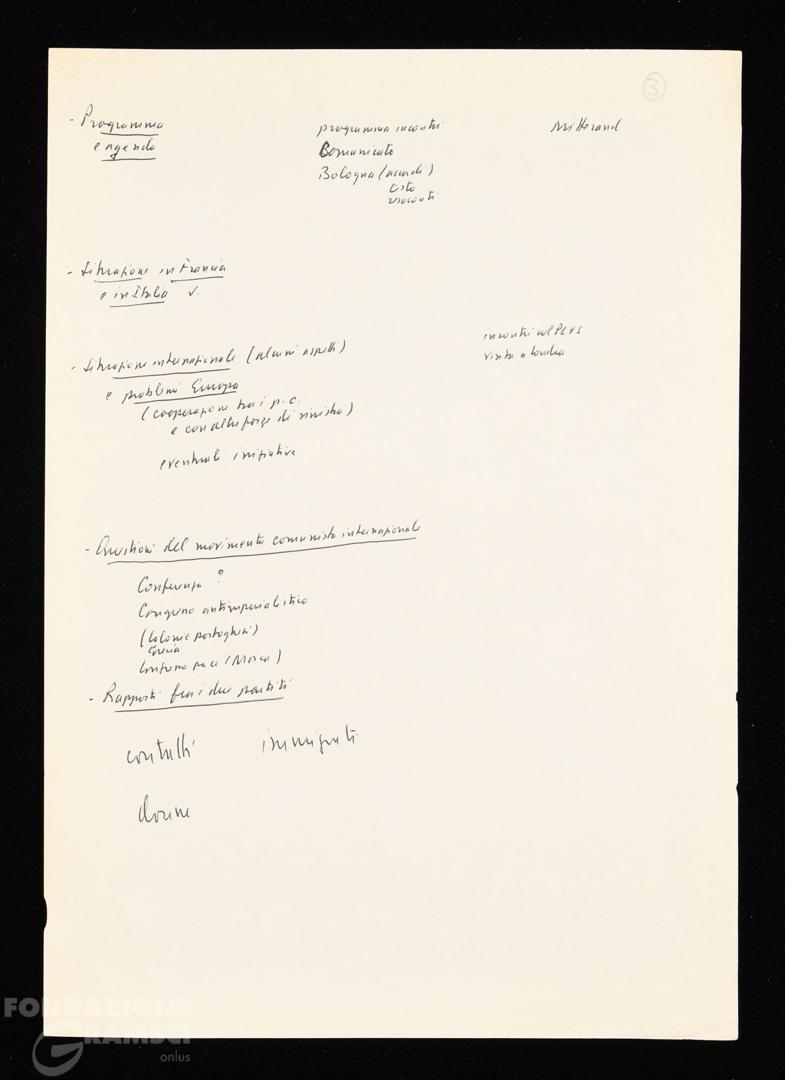 3
- Programma
e agenda
programma incontri
Comunicato
Bologna (accordi)
testo
resoconti
Mitterand
- Situazione in Francia
e in Italia v.
- Situazione internazionale (alcuni aspetti)
e problemi Europa
(cooperazione tra i p.c.
e con altre forze di sinistra)
eventuali iniziative
incontri col PCUS
visita a Londra
- Questioni del movimento comunista internazionale
Conferenza ?
Congresso antimperialistico
(Colonie portoghesi)
Grecia
pace (Mosca)
- Rapporti fra i due partiti
contatti
immigrati
donne
FONDAZIONE
GRAMSCI
onlus